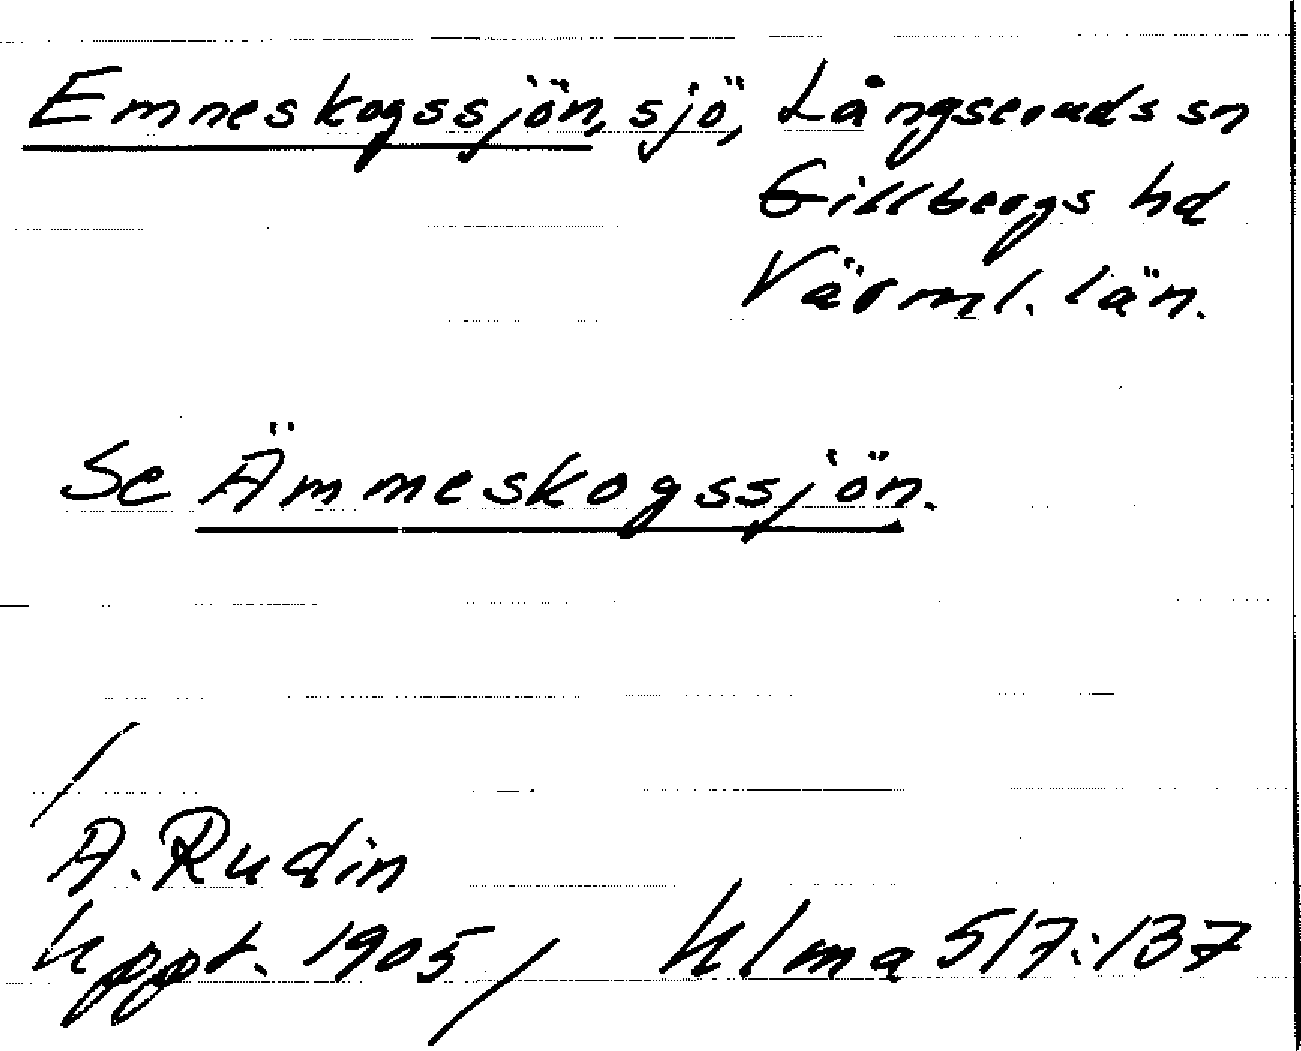 Emneskogssjön, sjö, Långseruds sn
Gillbergs hd
Värml. län.
Se Ämmeskogssjön.
/
A. Rudin
uppt. 1905/ Ulma 517:137